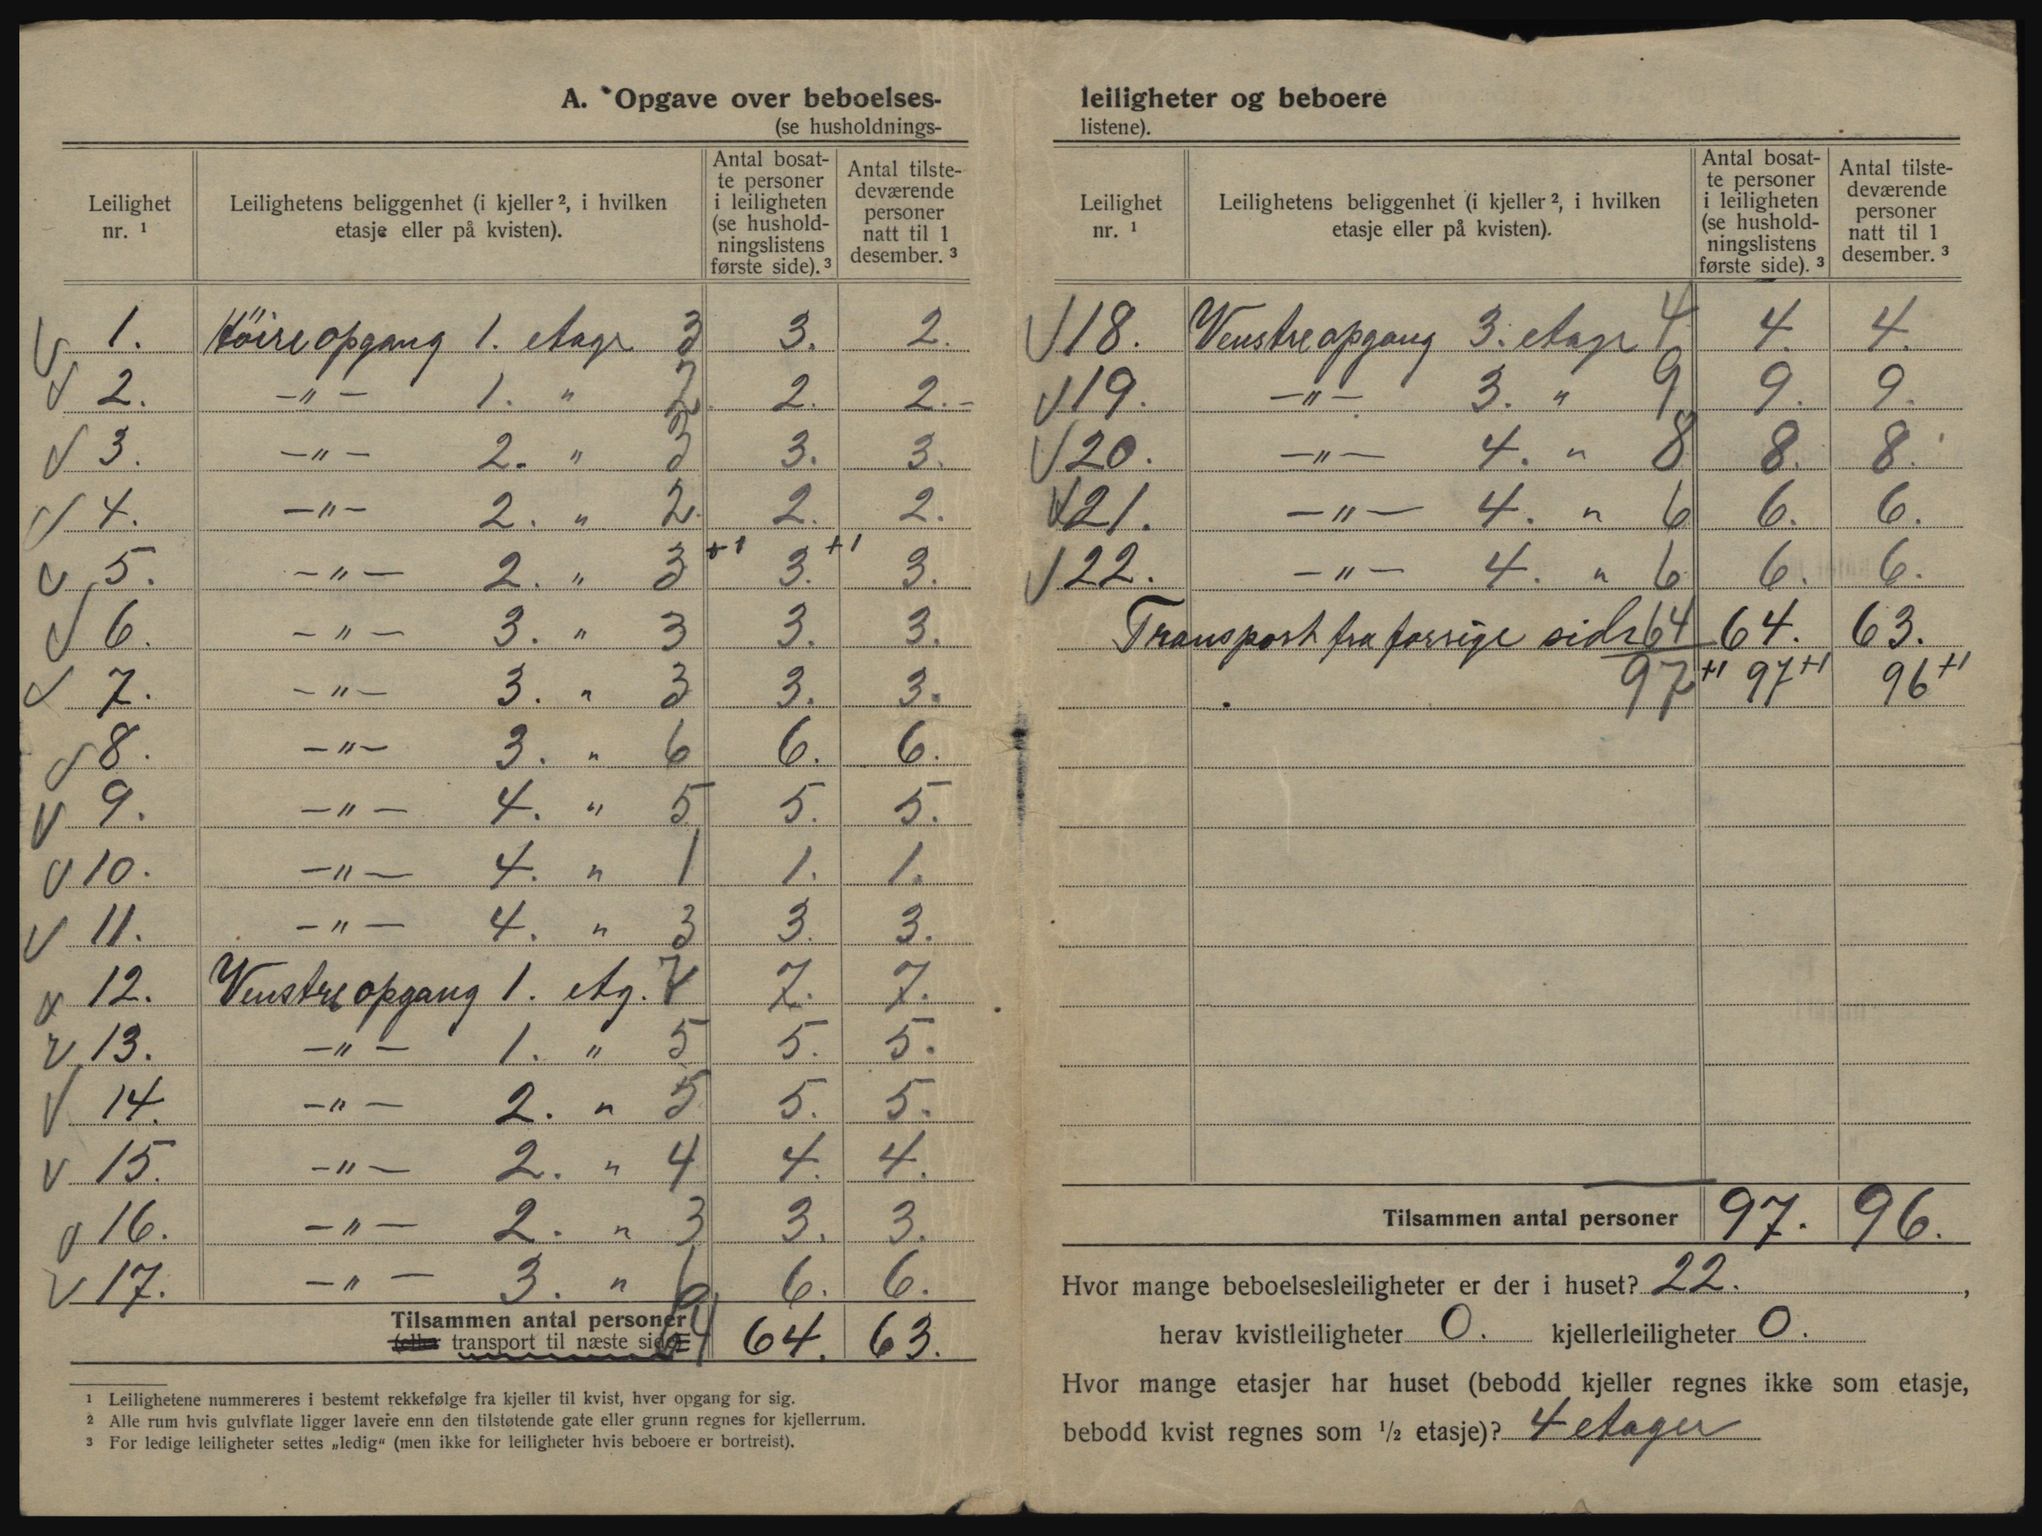 A. Opgave over beboelses-
(se husholdnings-
Leilighet nr. ¹ | Leilighetens beliggenhet (i kjeller ², i hvilken etasje eller på kvisten). | Antal bosat-te personer i leiligheten (se hushold-ningslistens første side). ³ | Antal tilste-deværende personer natt til 1 desember. ³
1. Höire opgang 1. etage 3 3. 2.
2. —〃— 1. 〃 2 2. 2.-
3. —〃— 2. 〃 3 3. 3.
4. —〃— 2. 〃 2. 2. 2.
5. —〃— 2. 〃 3 +1 3. +1 3.
6. —〃— 3. 〃 3 3. 3.
7. —〃— 3. 〃 3 3. 3.
8. —〃— 3. 〃 6 6. 6.
9. —〃— 4. 〃 5 5. 5.
10. —〃— 4. 〃 1 1. 1.
11. —〃— 4. 〃 3 3. 3.
12. Venstre opgang 1. etg. 7 7. 7.
13. —〃— 1. 〃 5 5. 5.
14. —〃— 2. 〃 5 5. 5.
15. —〃— 2. 〃 4 4. 4.
16. —〃— 2. 〃 3 3. 3.
17. —〃— 3. 〃 6 6. 6.
Tilsammen antal personer
(eller transport til næste side) 64 64. 63.
¹ Leilighetene nummereres i bestemt rekkefølge fra kjeller til kvist, hver opgang for sig.
² Alle rum hvis gulvflate ligger lavere enn den tilstøtende gate eller grunn regnes for kjellerrum.
³ For ledige leiligheter settes „ledig“ (men ikke for leiligheter hvis beboere er bortreist).
leiligheter og beboere
listene).
Leilighet nr. ¹ | Leilighetens beliggenhet (i kjeller ², i hvilken etasje eller på kvisten). | Antal bosat-te personer i leiligheten (se hushold-ningslistens første side). ³ | Antal tilste-deværende personer natt til 1 desember. ³
18. Venstre opgang 3. etage 4 4. 4.
19. —〃— 3. 〃 9 9. 9.
20. —〃— 4. 〃 8 8. 8.
21. —〃— 4. 〃 6 6. 6.
22. —〃— 4. 〃 6 6. 6.
Transport fra forrige side 64 64. 63.
97 +1 97 +1 96 +1
Tilsammen antal personer 97. 96.
Hvor mange beboelsesleiligheter er der i huset? 22.,
herav kvistleiligheter 0. kjellerleiligheter 0.
Hvor mange etasjer har huset (bebodd kjeller regnes ikke som etasje,
bebodd kvist regnes som ½ etasje)? 4 etager